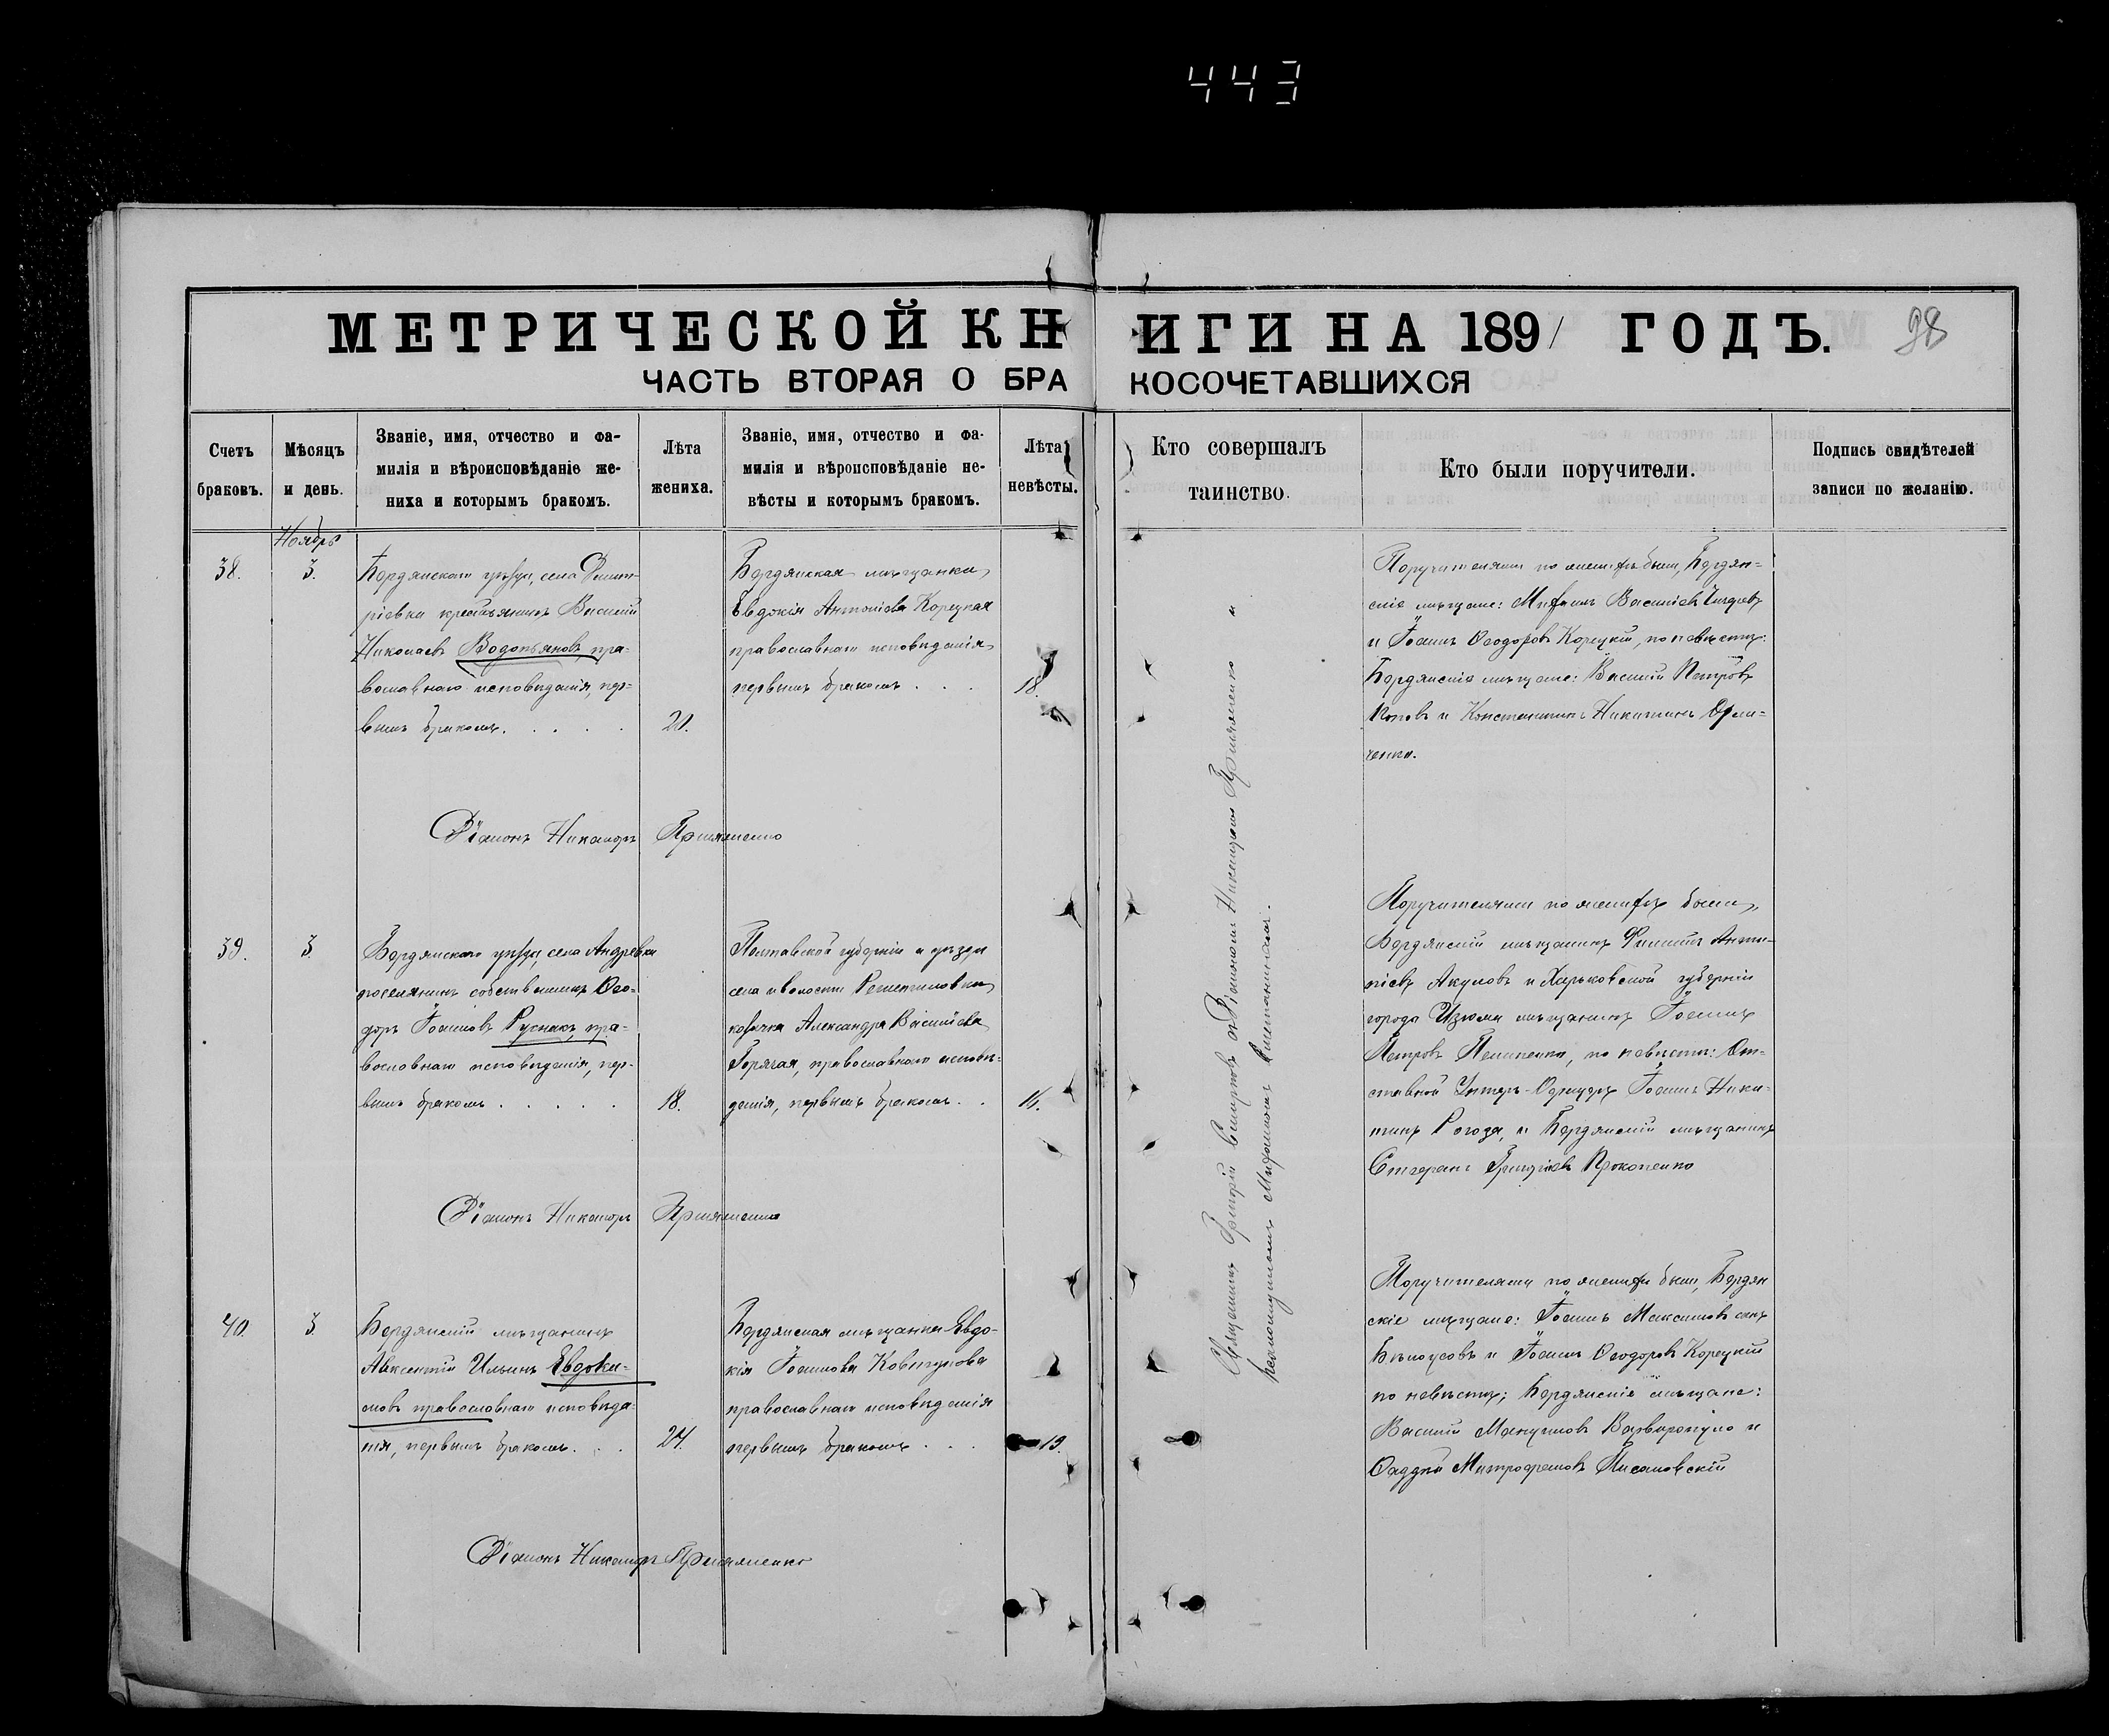 443
МЕТРИЧЕСКОЙ КНИГИ НА 1891 ГОДЪ.
98
ЧАСТЬ ВТОРАЯ О БРАКОСОЧЕТАВШИХСЯ
Счетъ браковъ.
Мѣсяцъ и день.
Званіе, имя, отчество и фа-
милія и вѣроисповѣданіе же-
ниха и которымъ бракомъ.
Лѣта жениха.
Званіе, имя, отчество и фа-
милія и вѣроисповѣданіе не-
вѣсты и которымъ бракомъ.
Лѣта невѣсты.
Кто совершалъ
таинство.
Кто были поручители.
Подпись свидѣтелей
записи по желанію.
Ноябрь
38.
3.
Бердянскаго уѣзда, села Дмит-
ріевки крестьянинъ Василій
Николаевъ Водопьяновъ, пра-
вославнаго исповѣданія, пер-
вымъ бракомъ.
20.
Бердянская мѣщанка
Евдокія Антоніева Корецкая
православнаго исповѣданія
первымъ бракомъ
18.
Поручителями по женихѣ были, Бердян-
скіе мѣщане: Василіевъ
и Іоаннъ Ѳеодоровъ Корецкій, по невѣстѣ:
Бердянскіе мѣщане: Василій Петровъ
Поповъ и Константинъ Никитинъ
ченко.
Діаконъ Никаноръ
39.
3
Бердянскаго уѣзда, села Андреевки
поселянинъ собственникъ Ѳео-
доръ Іоанновъ Руснакъ, пра-
вославнаго исповѣданія, пер-
вымъ бракомъ
18.
Полтавской губерніи и уѣзда
села и волости Решетиловки
козачка Александра Василіева
Горячая, православнаго исповѣ-
данія, первымъ бракомъ
Поручителями по женихѣ были,
Бердянскій мѣщанинъ Филиппъ Анти-
піевъ Акуловъ и Харьковской губерніи
города Изюма мѣщанинъ Іоаннъ
Петровъ по невѣстѣ: От-
ставной Унтеръ-Офицеръ Іоаннъ Ники-
тинъ Рогоза, и Бердянскій мѣщанинъ
Стефанъ Григоріевъ Прокопенко
Діаконъ Никаноръ
40.
3.
Бердянскій мѣщанинъ
Авксентій Ильинъ Евдоки-
мовъ православнаго исповѣда-
нія, первымъ бракомъ.
24.
Бердянская мѣщанка Евдо-
кія Іоаннова Ковтунова
православнаго исповѣданія
первымъ бракомъ
19.
Поручителями по женихѣ были, Бердян
скіе мѣщане: Іоаннъ Максимовъ сынъ
Бѣлоусовъ и Іоаннъ Ѳеодоровъ Корецкій
по невѣстѣ; Бердянскіе мѣщане:
Василій Мануиловъ Варваропуло и
Ѳаддей Митрофановъ Лисановскій
Діаконъ Никаноръ
Священникъ Григорій съ Діакономъ Никаноромъ
псаломщикомъ